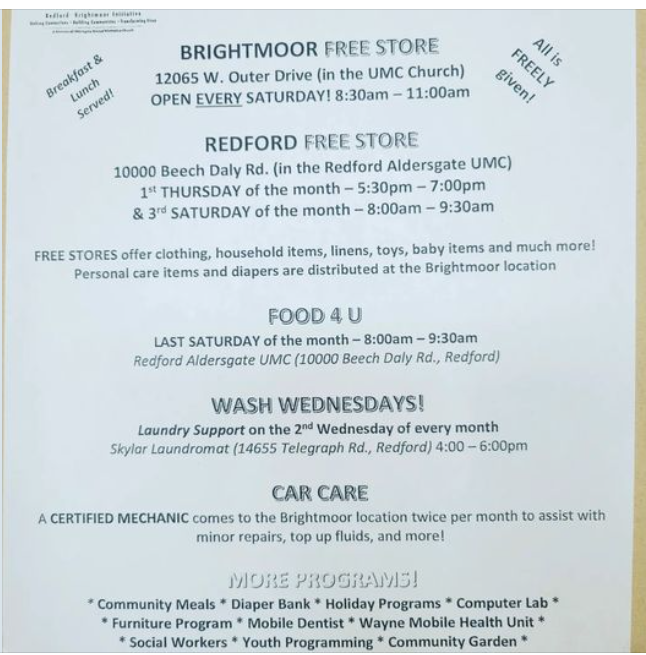 Redford Brightmoor Initiative
BRIGHTMOOR FREE STORE
12065 W. Outer Drive (in the UMC Church)
OPEN EVERY SATURDAY! 8:30am – 11:00am
Breakfast &
Lunch
Served!
All is
FREELY
given!
REDFORD FREE STORE
10000 Beech Daly Rd. (in the Redford Aldersgate UMC)
1st THURSDAY of the month – 5:30pm – 7:00pm
& 3rd SATURDAY of the month – 8:00am – 9:30am
FREE STORES offer clothing, household items, linens, toys, baby items and much more!
Personal care items and diapers are distributed at the Brightmoor location
FOOD 4 U
LAST SATURDAY of the month – 8:00am – 9:30am
Redford Aldersgate UMC (10000 Beech Daly Rd., Redford)
WASH WEDNESDAYS!
Laundry Support on the 2nd Wednesday of every month
Skylar Laundromat (14655 Telegraph Rd., Redford) 4:00 – 6:00pm
CAR CARE
A CERTIFIED MECHANIC comes to the Brightmoor location twice per month to assist with
minor repairs, top up fluids, and more!
MORE PROGRAMS!
* Community Meals * Diaper Bank * Holiday Programs * Computer Lab *
* Furniture Program * Mobile Dentist * Wayne Mobile Health Unit *
* Social Workers * Youth Programming * Community Garden *